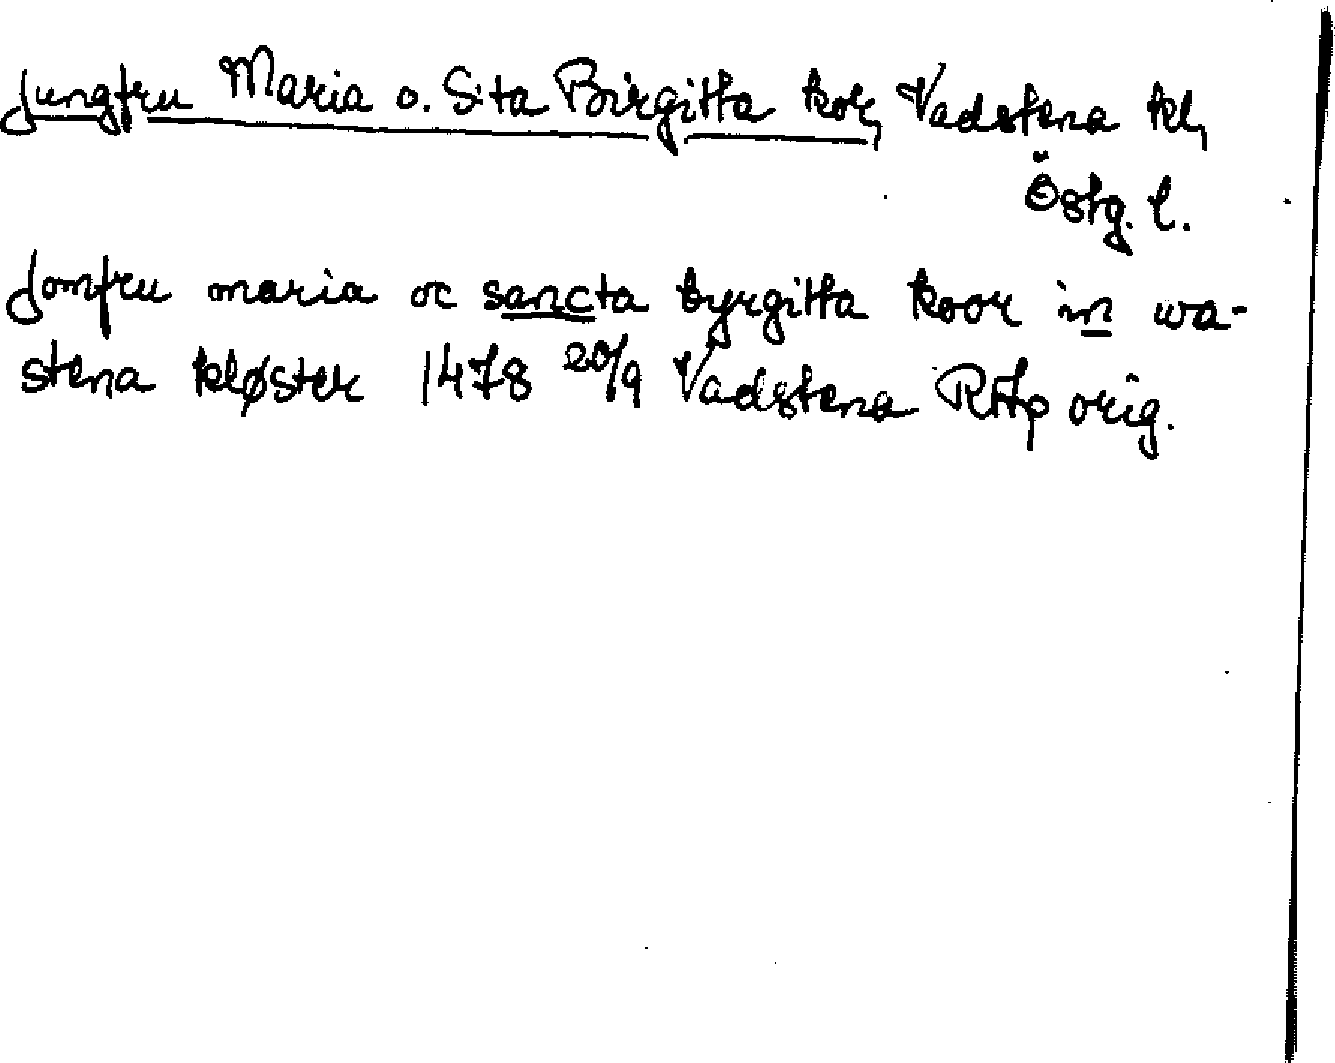 Jungfru Maria o. S:ta Birgitta kor, Vadstena kl,
Östg. l.
Jomfru maria oc sancta byrgitta koor in wa-
stena kløster 1478 20/9 Vadstena RAp orig.